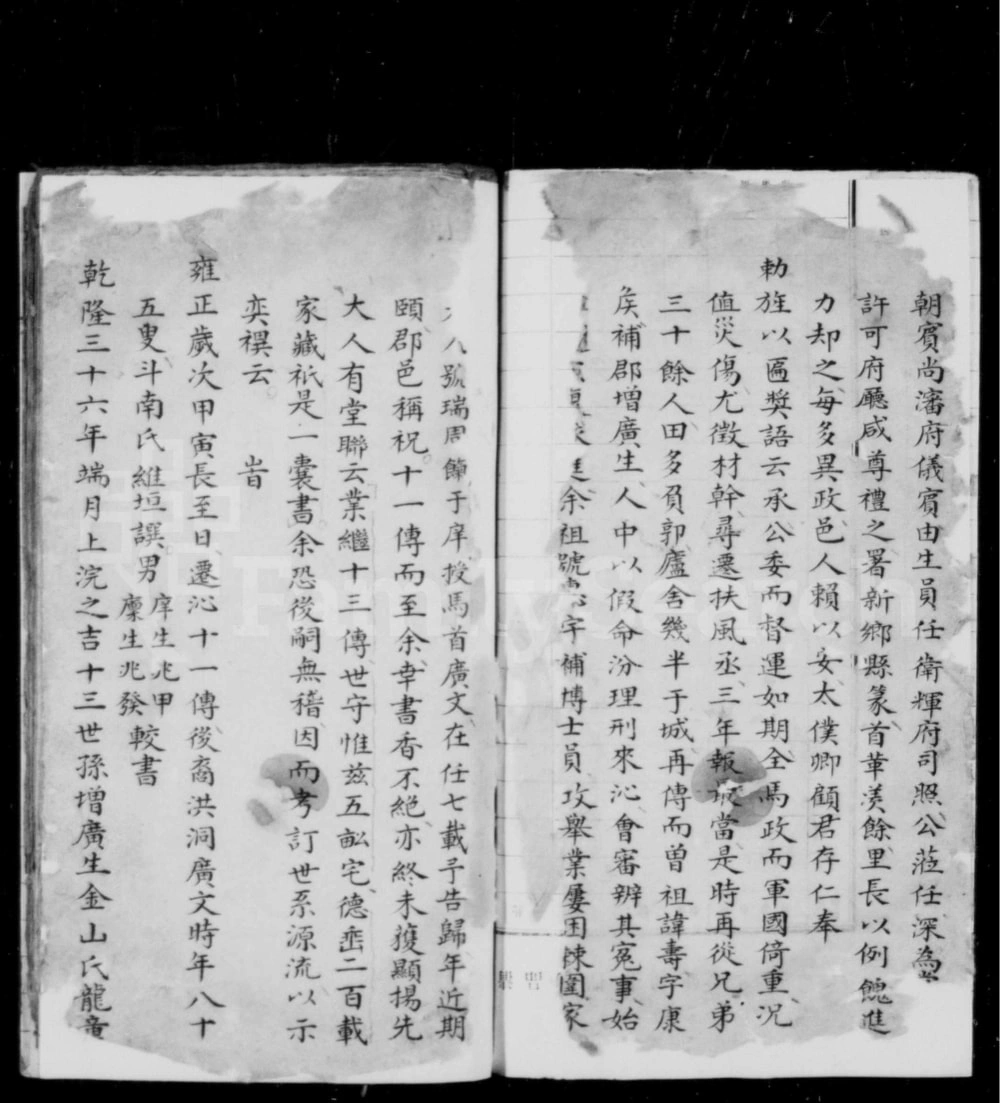 朝賓尚瀋府儀賓由生員任衛輝府司照公蒞任深為
許可府廳咸尊禮之署新鄉縣篆首革羡餘里長以例餽進
力却之每多異政邑人賴以安太僕卿顧君存仁奉
勅旌以匾奬語云承公委而督運如期全馬政而軍國倚重况
值災傷尤徵材幹尋遷扶風丞三年報最當是時再從兄弟
三十餘人田多負郭廬舍幾半于城再傳而曾祖諱壽字康
矦補郡增廣生人中以假命汾理刑來沁會審辨其寃事始
余祖號字補博士員攻舉業屢困棘圍家
八號瑞周餼于庠授馬首廣文在任七載予告歸年近期
頤郡邑稱祝十一傳而至余幸書香不絕亦終未獲顯揚先
大人有堂聯云業繼十三傳世守惟兹五畝宅德垂二百載
家藏祇是一囊書余恐後嗣無稽因而考訂世系源流以示
奕禩云 旹
雍正歲次甲寅長至日遷沁十一傳後裔洪洞廣文時年八十
五叟斗南氏維垣譔男庠生兆甲廩生兆發較書
乾隆三十六年端月上浣之吉十三世孫增廣生金山氏龍